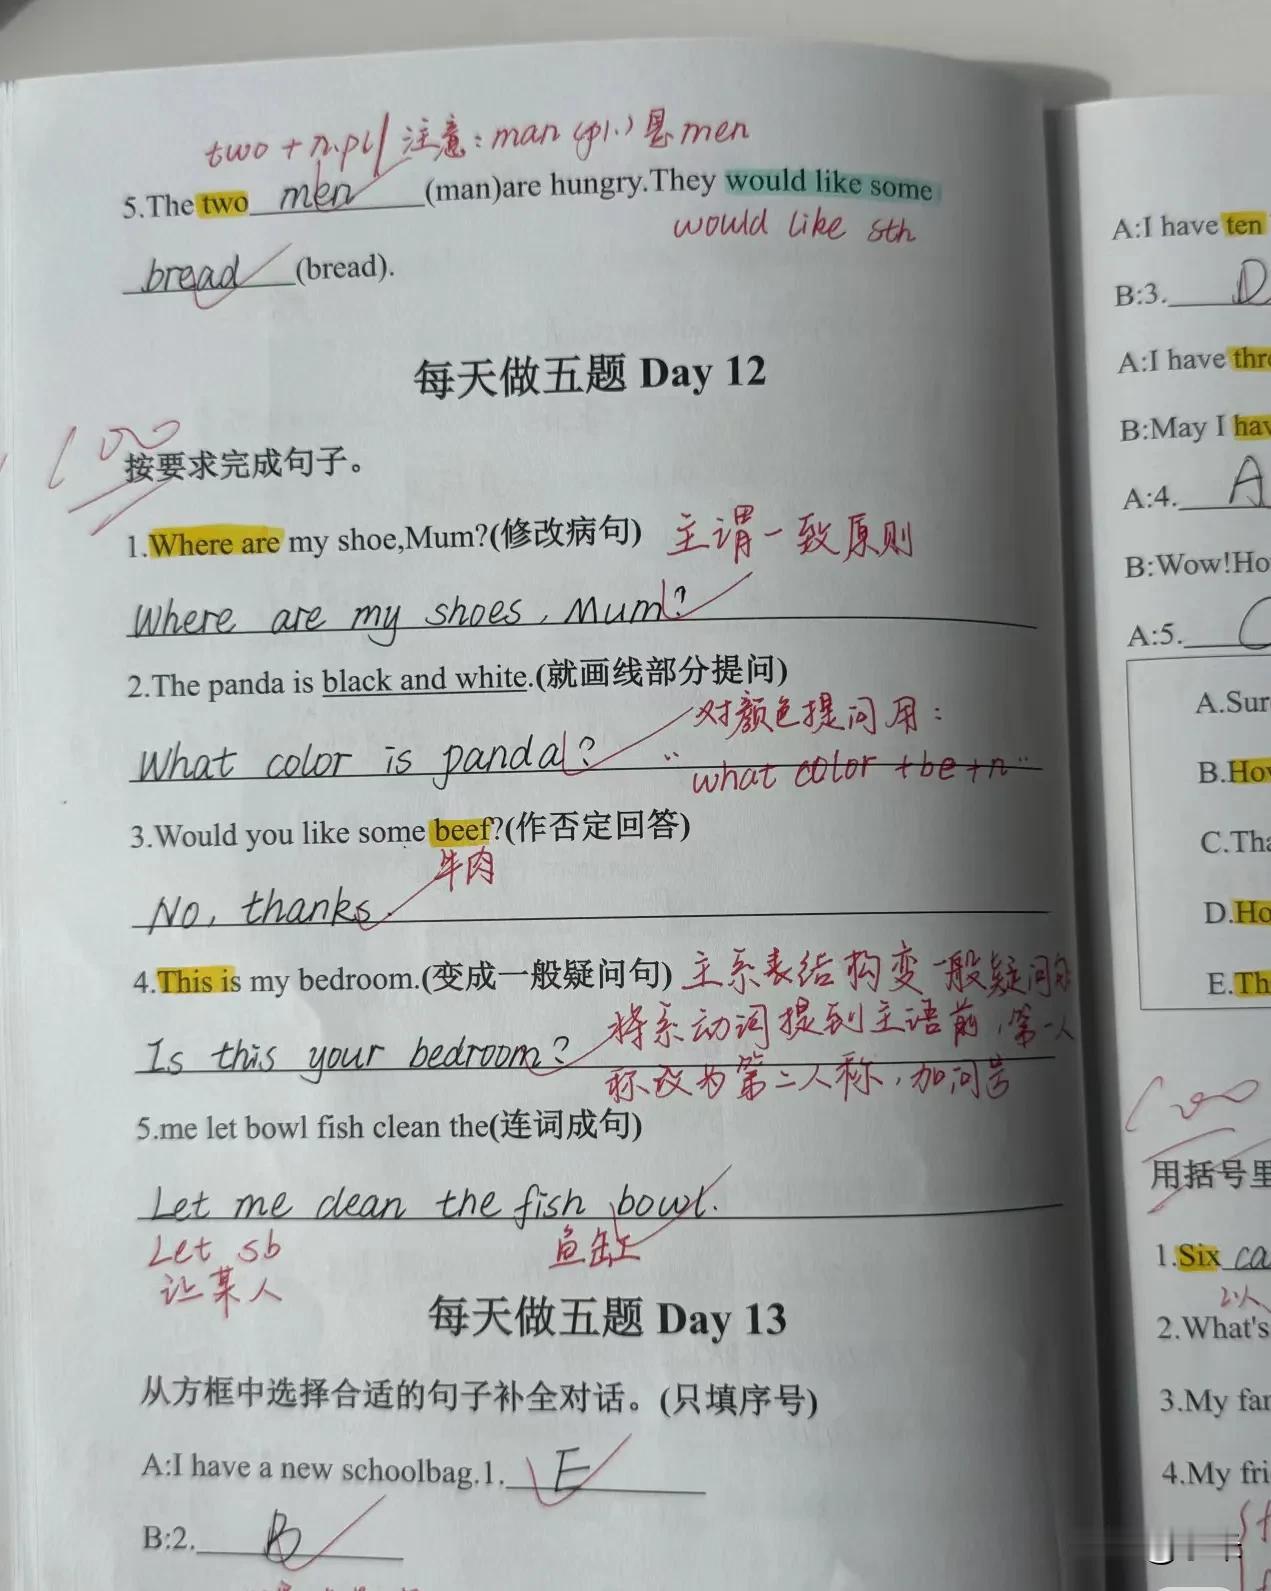 two + n.pl 注意：man (pl.) 是 men
5.The two men (man)are hungry.They would like some
would like sth
bread (bread).
每天做五题 Day 12
100
按要求完成句子。
1.Where are my shoe,Mum?(修改病句) 主谓一致原则
Where are my shoes, Mum?
2.The panda is black and white.(就画线部分提问)
对颜色提问用：
What color is panda? "what color +be+n"
3.Would you like some beef?(作否定回答)
牛肉
No, thanks.
4.This is my bedroom.(变成一般疑问句) 主系表结构变一般疑问句
将系动词提到主语前，第一人
Is this your bedroom? 称改为第二人称，加问号
5.me let bowl fish clean the(连词成句)
Let me clean the fish bowl.
Let sb 鱼缸
让某人
每天做五题 Day 13
从方框中选择合适的句子补全对话。(只填序号)
A:I have a new schoolbag.1. E
B:2. B
A:I have ten
B:3. D
A:I have
B:May I
A:4. A
B:Wow!
A:5. C
A.
B.
C.
D.
E.
100
用括号里
1.Six
2.What's
3.My
4.My